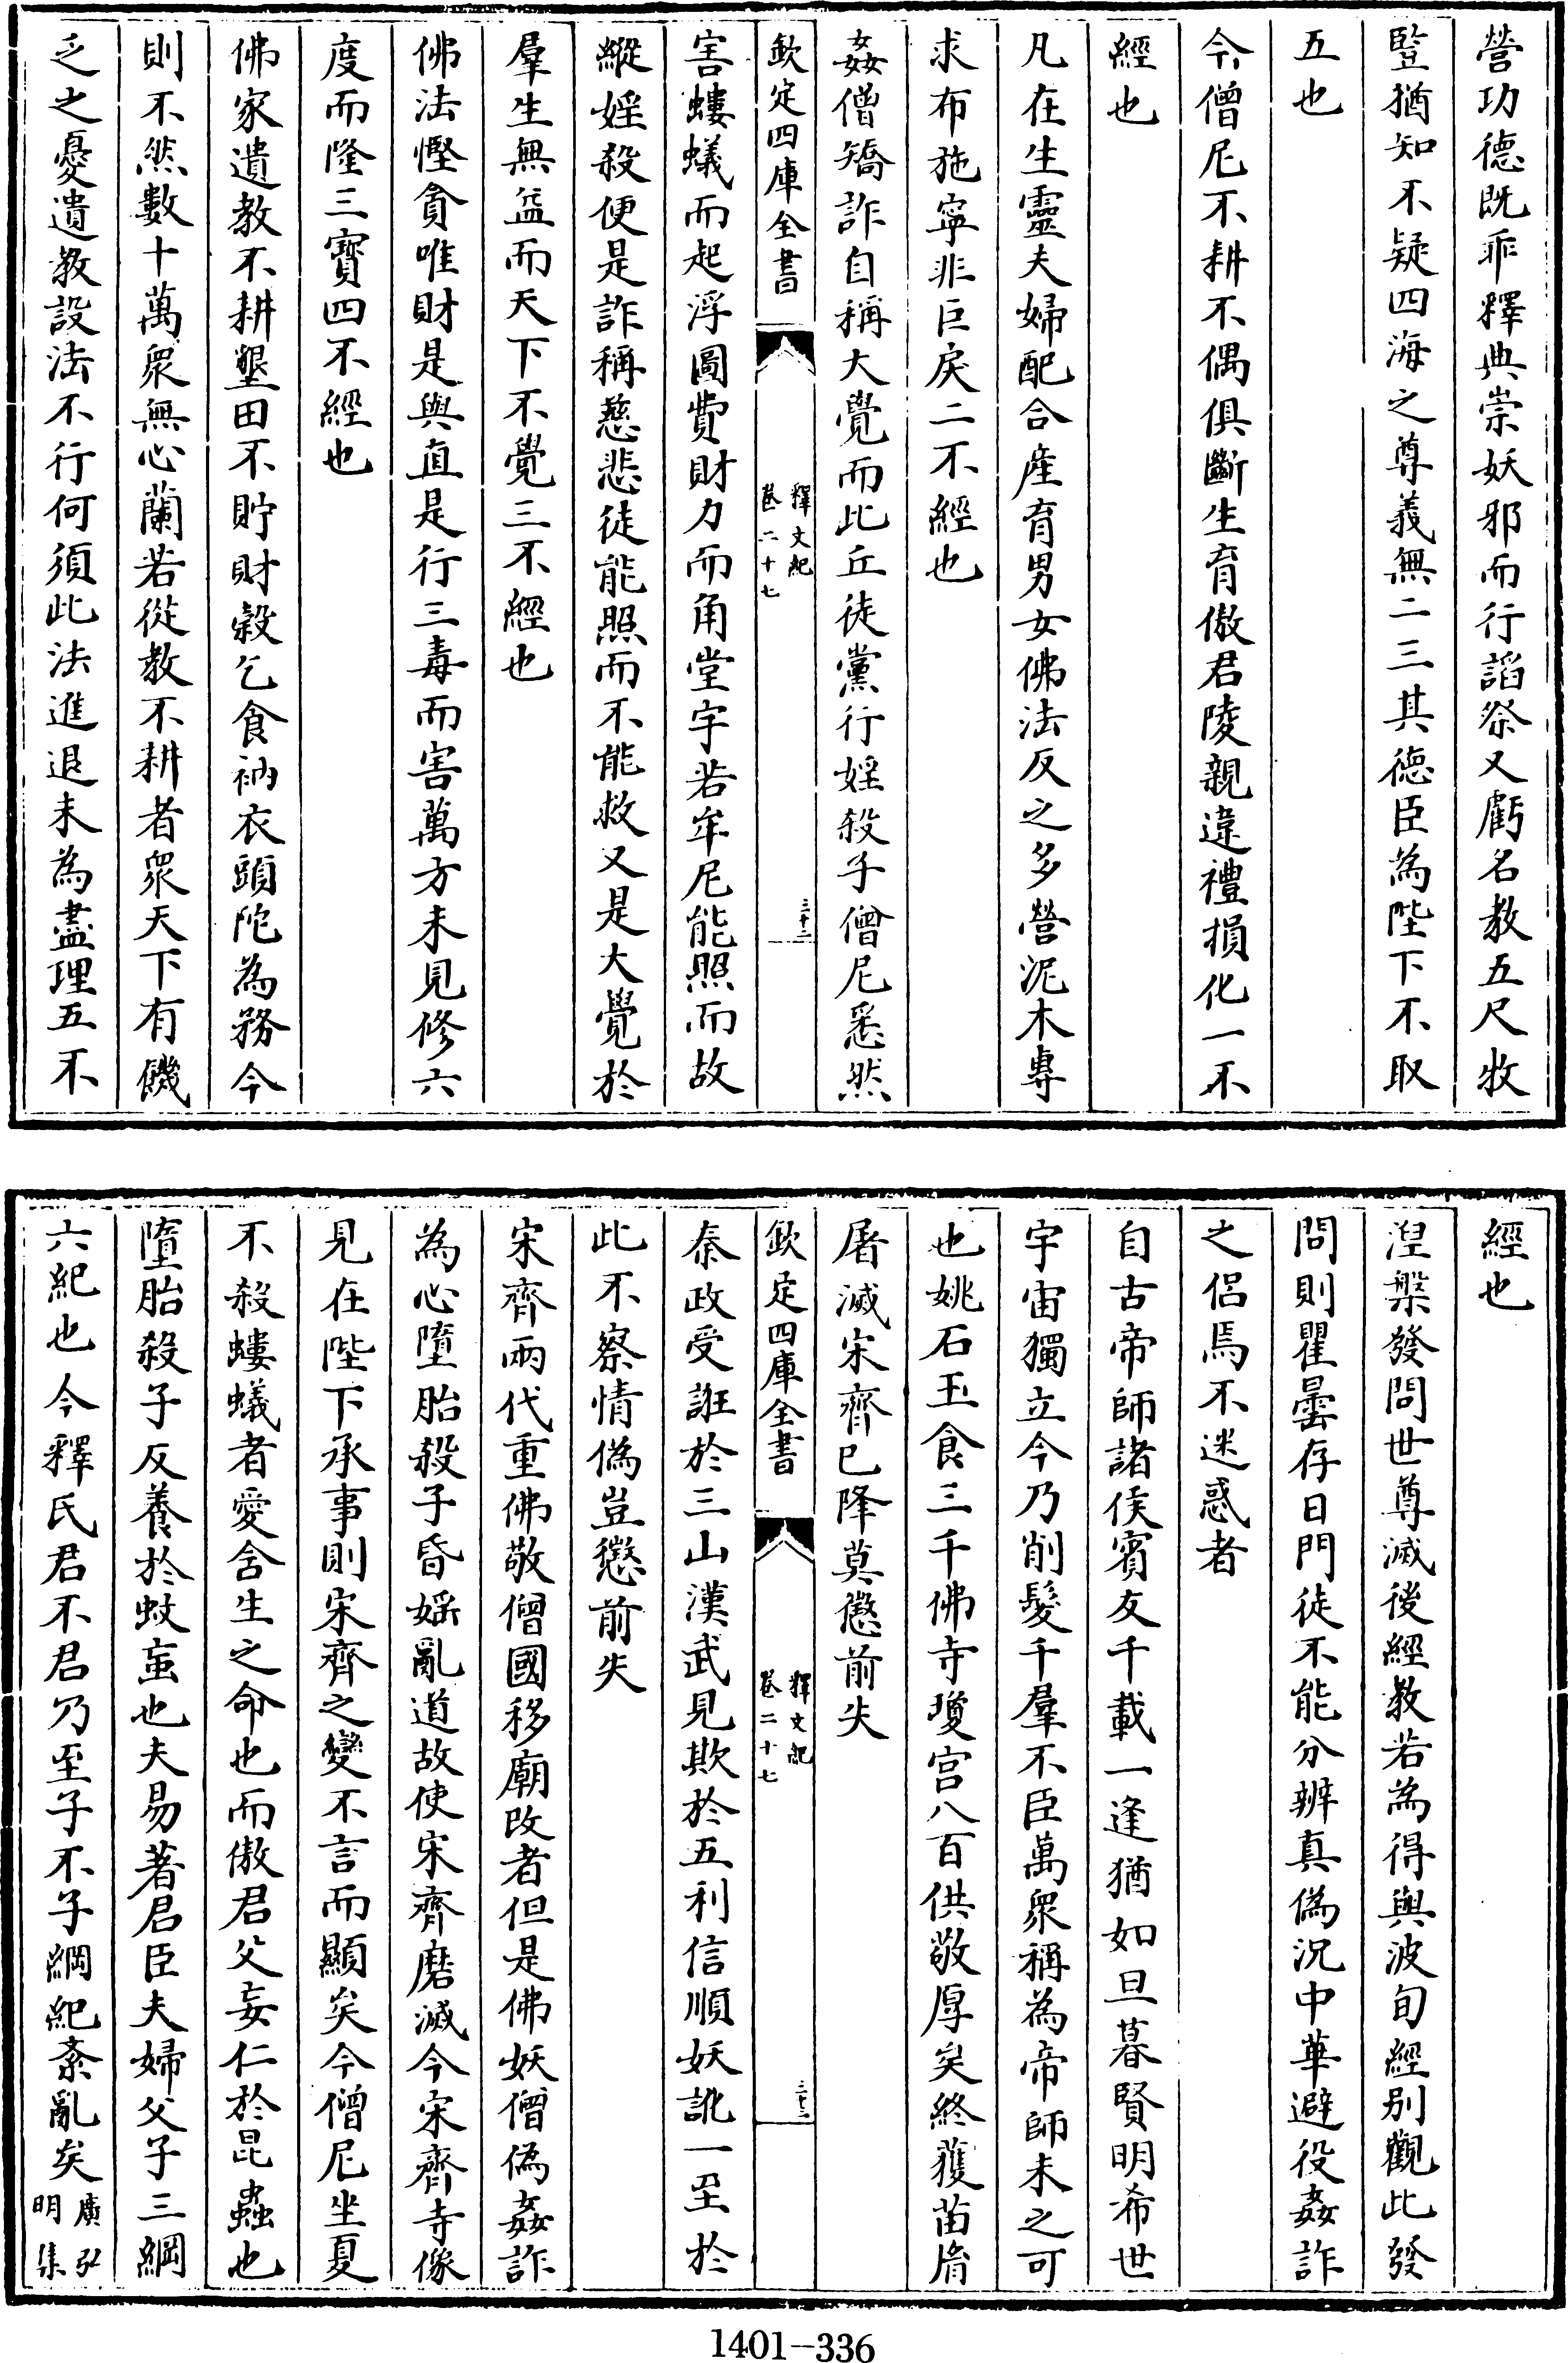 營功德既乖釋典崇妖邪而行謟祭又虧名教五尺牧
豎猶知不疑四海之尊義無二三其德臣為陛下不取
五也
今僧尼不耕不偶俱斷生育傲君陵親違禮損化一不
經也
凡在生靈夫婦配合産育男女佛法反之多營泥木專
求布施寧非巨戾二不經也
姦僧矯詐自稱大覺而比丘徒黨行婬殺子僧尼悉然
欽定四庫全書
釋文紀
卷二十七
三十二
害螻蟻而起浮圖費財力而角堂宇若牟尼能照而故
縱婬殺便是詐稱慈悲徒能照而不能救又是大覺於
羣生無益而天下不覺三不經也
佛法慳貪唯財是與直是行三毒而害萬方未見修六
度而隆三寶四不經也
佛家遺教不耕墾田不貯財榖乞食衲衣頭陀為務今
則不然數十萬衆無心蘭若從教不耕者衆天下有饑
乏之憂遺教設法不行何須此法進退未為盡理五不
經也
湼槃發問世尊滅後經教若為得與波旬經别觀此發
問則瞿曇存日門徒不能分辨真偽況中華避役姦詐
之侶焉不迷惑者
自古帝師諸侯賓友千載一逢猶如旦暮賢明希世
宇宙獨立今乃削髮千羣不臣萬衆稱為帝師未之可
也姚石玉食三千佛寺瓊宫八百供敬厚矣終獲苗胤
屠滅宋齊已降莫懲前失
欽定四庫全書
釋文紀
卷二十七
三十三
秦政受誑於三山漢武見欺於五利信順妖訛一至於
此不察情偽豈懲前失
宋齊兩代重佛敬僧國移廟改者但是佛妖僧偽姦詐
為心墮胎殺子昏婬亂道故使宋齊磨滅今宋齊寺像
見在陛下承事則宋齊之變不言而顯矣今僧尼坐夏
不殺螻蟻者愛含生之命也而傲君父妄仁於昆蟲也
墮胎殺子反養於蚊䖟也夫易著君臣夫婦父子三綱
六紀也今釋氏君不君乃至子不子綱紀紊亂矣廣弘
明集
1401-336